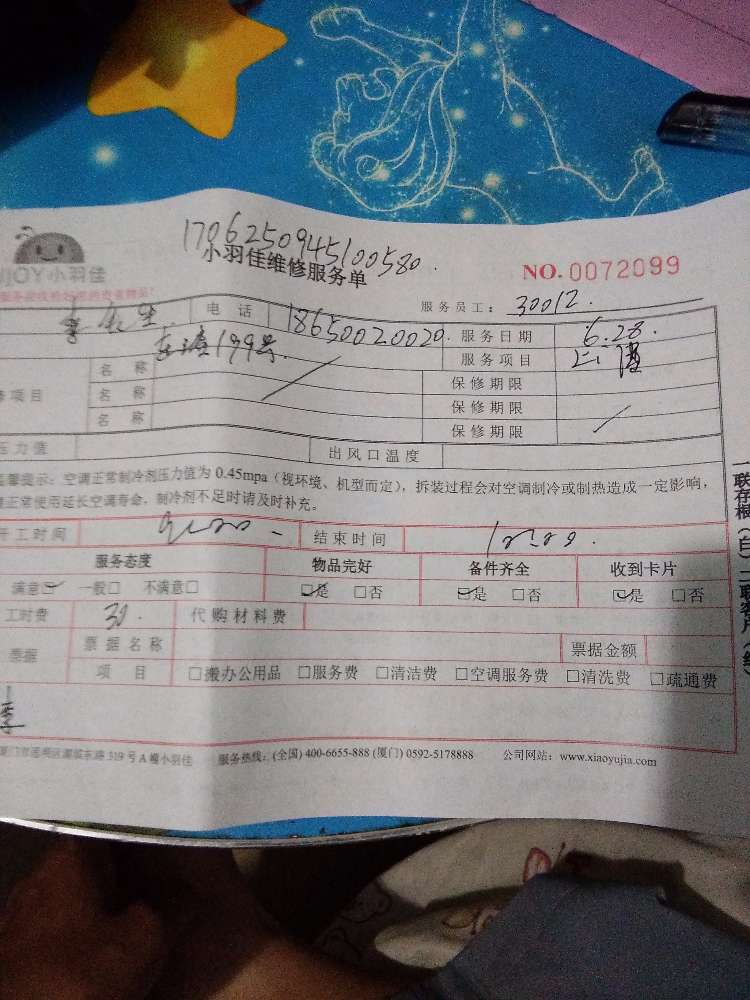 1706250945100580.
JOY小羽佳
小羽佳维修服务单
NO. 0072099
服务员工: 30012.
李 电 话 18650020020. 服务日期 6.28.
199号. 服务项目
项目 名 称 保修期限
名 称 保修期限
名 称 保修期限
压力值 出风口温度
温馨提示: 空调正常制冷剂压力值为 0.45mpa (视环境、机型而定), 拆装过程会对空调制冷或制热造成一定影响,
正常使用延长空调寿命, 制冷剂不足时请及时补充。
开工时间 结束时间
服务态度 物品完好 备件齐全 收到卡片
满意☑ 一般□ 不满意□ ☑是 □否 ☑是 □否 ☑是 □否
工时费 30. 代购材料费
票据 票据名称 票据金额
项 目 □搬办公用品 □服务费 □清洁费 □空调服务费 □清洗费 □疏通费
李
东路 319 号 A 幢小羽佳 服务热线: (全国) 400-6655-888 (厦门) 0592-5178888 公司网站: www.xiaoyujia.com
一联存根(白)二联客户(红)